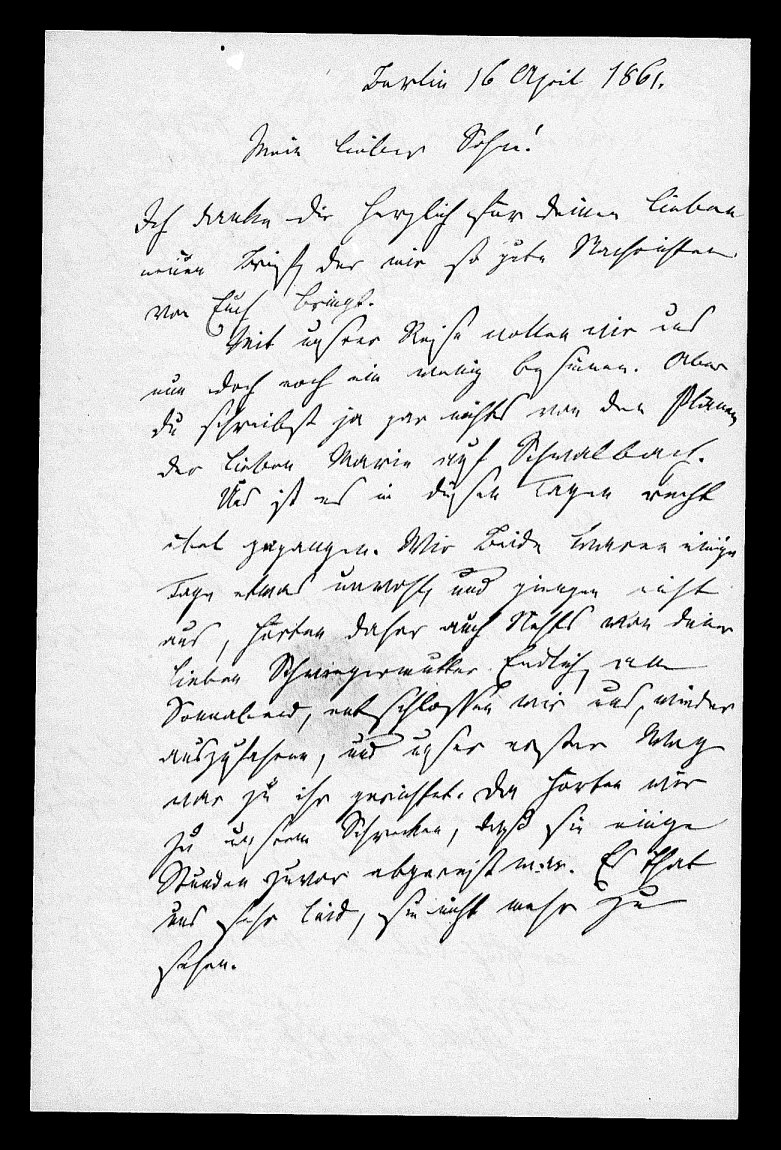 Berlin 16 April 1861.
Mein lieber Sohn!
Ich danke dir herzlich für deinen lieben
neuen Brief, der mir so gute Nachrichten
von Euch bringt.
Mit unsrer Reise wollen wir uns
nun doch noch ein wenig besinnen. Aber
du schreibst ja gar nichts von den Plänen
der lieben Marie auf Schwalbach.
Uns ist es in diesen Tagen recht
übel gegangen. Wir Beide waren einige
Tage etwas unwohl, und giengen nicht
aus, hörten daher auch Nichts von deiner
lieben Schwiegermutter. Endlich, am
Sonnabend, entschlossen wir uns, wieder
auszufahren, und unser erster Weg
war zu ihr gerichtet. Da hörten wir
zu unserm Schrecken, daß sie einige
Stunden zuvor abgereist war. Es that
uns sehr leid, sie nicht mehr zu
sehen.